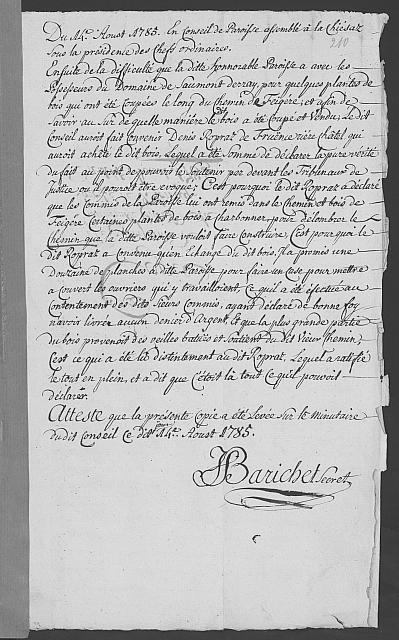 Du 14.e Aoust 1785. En Conseil de Paroisse assemblé à la Chiésaz
sous la présidence des Chefs ordinaires.
210
Ensuite de la difficulté que la ditte honnorable Paroisse a avec les
Possesseurs du Domaine de Saumont derray, pour quelques plantes de
bois qui ont été Coupées le long du Chemin de Feigère; et afin de
savoir au sur de quelle manière le bois a été Coupé et Vendu, Le dit
Conseil auroit fait Convenir Denis Roprat de Fruence rière Châtel qui
auroit acheté le dit bois, Lequel a été Sommé de déclarer la pure vérité
du fait au point de pouvoir le Soutenir par devant les Tribunaux de
Justice ou il pouroit être évoqué; C'est pourquoi le dit Roprat a déclaré
que les Commis de la Paroisse lui ont remis dans le Chemin et bois de
Feigère Certaines plantes de bois à charbonner, pour délombrer le
Chemin que la ditte Paroisse vouloit faire Construire, C'est pourquoi le
dit Roprat a Convenu qu'en Echange du dit bois, il a promis une
Douzaine de planches à ditte Paroisse pour faire un Case pour mettre
a couvert les ouvriers qui y travailloient, Ce qui a été éfectué au
Contentement des dits Sieurs Commis, ayant déclaré de bonne foy
n'avoir livrer aucun denier d'Argent, Et que la plus grande partie
du bois provenoit des veilles balizes et soutiens du dit Vieux Chemin,
C'est ce qui a été lû distentement au dit Roprat, Lequel a ratifié
le tout en plein, et a dit que C'étoit là tout Ce qu'il pouvoit
déclarer.
Atteste que la présente Copie a été Levée sur le minutaire
du dit Conseil Ce dit jour 14.e Aoust 1785.
JBarichet Secret.